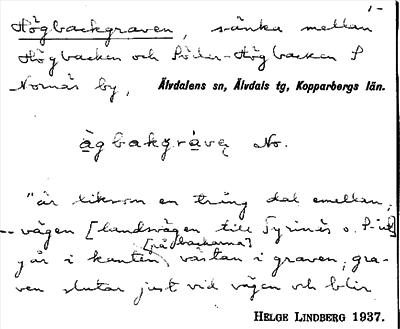 1-
Högbackgraven, sänka mellan
Högbacken och Söder-Högbacken S
Nornäs by, Älvdalens sn, Älvdals tg, Kopparbergs län.
àgbakgràvęn No.
"är liksom en trång dal emellan;
-- vägen [landsvägen till Tyrinäs o. S-ut]
[på backarna]
går i kanten västan i graven; gra-
ven slutar just vid vägen och blir
HELGE LINDBERG 1937.